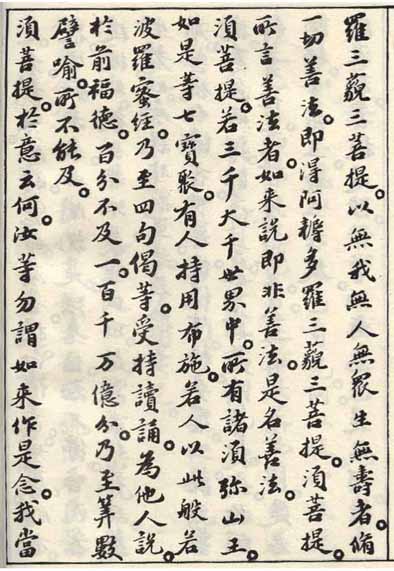 羅三藐三菩提。以無我無人無眾生無壽者。脩
一切善法。即得阿耨多羅三藐三菩提。須菩提。
所言善法者。如来說即非善法。是名善法。
須菩提。若三千大千世界中。所有諸須弥山王。
如是等七寶聚。有人持用布施。若人以此般若
波羅蜜經。乃至四句偈等。受持讀誦。為他人說。
於前福德。百分不及一。百千万億分。乃至筭數
譬喻。所不能及。
須菩提。於意云何。汝等勿謂如来作是念。我當